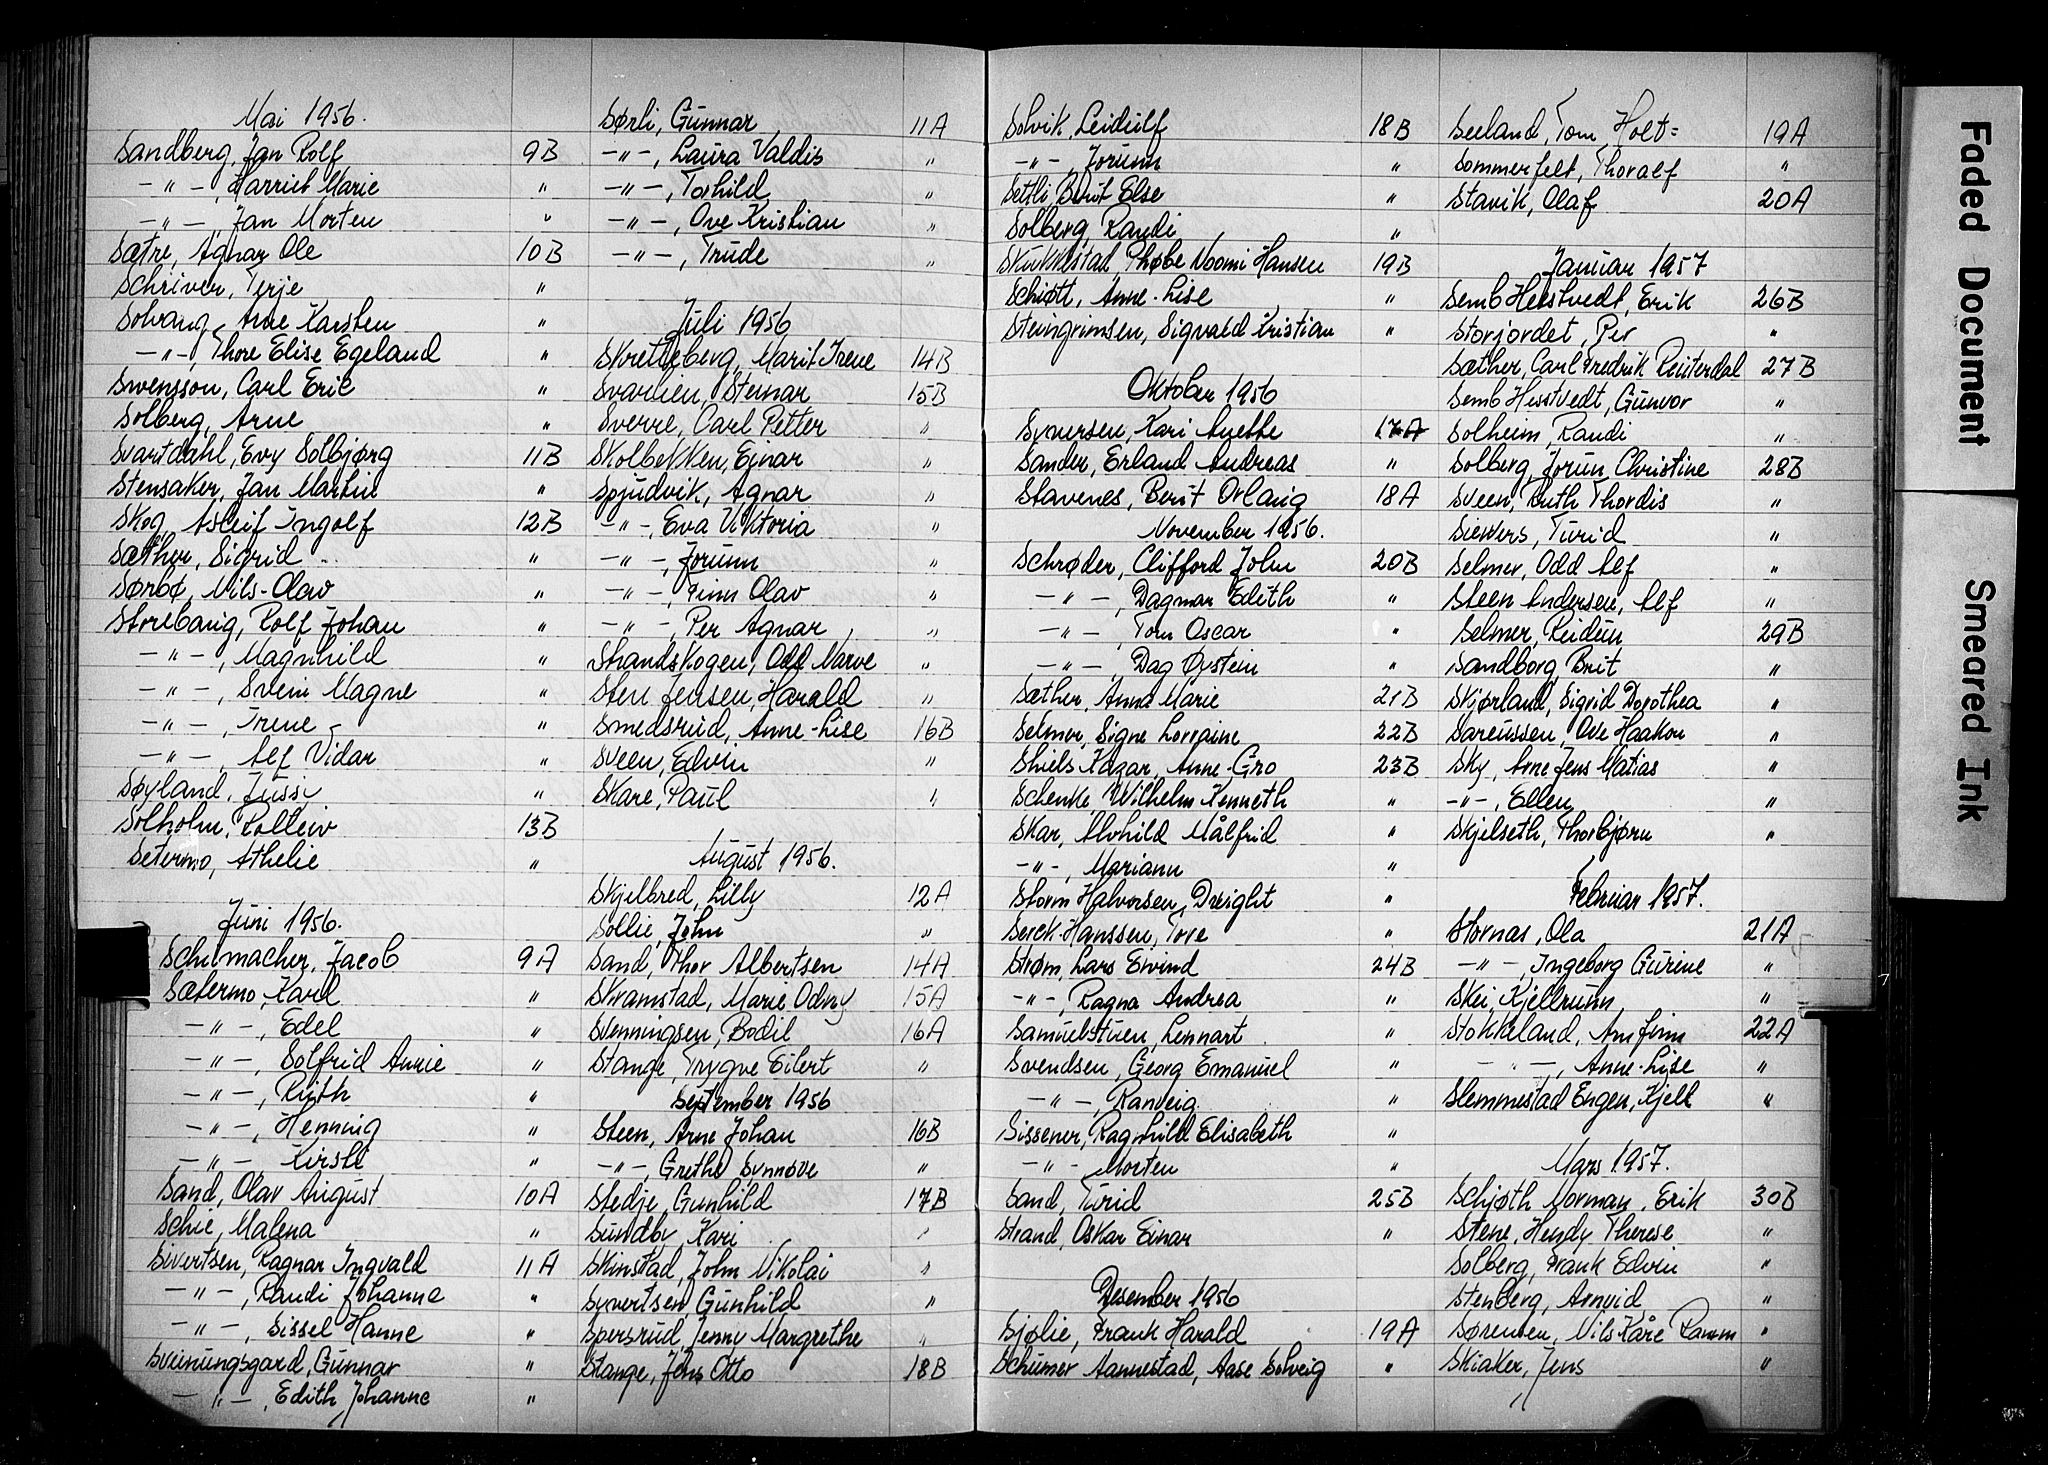 Mai 1956.
Sandberg, Jan Rolf 9B
-"-, Harriet Marie "
-"-, Jan Morten "
Sætre, Agnar Ole 10B
Schriver, Terje "
Solvang, Arne Karsten "
-"-, Thore Elise Egeland "
Swensson, Carl Eric "
Solberg, Arne "
Svartdahl, Evy Solbjørg 11B
Stensaker, Jan Martin "
Skog, Asleif Ingolf 12B
Sæther, Sigrid "
Sørbø, Nils-Olav "
Storebaug, Rolf Johan "
-"-, Magnhild "
-"-, Svein Magne "
-"-, Irene "
-"-, Alf Vidar "
Søyland, Jussi "
Solholm, Rolleiv 13B
Setermo, Athelie "
Juni 1956.
Schumacher, Jacob 9A
Sætermo, Karl "
-"-, Edel "
-"-, Solfrid Annie "
-"-, Ruth "
-"-, Henning "
-"-, Kirsti "
Sand, Olav August 10A
Schie, Malena "
Sivertsen, Ragnar Ingvald 11A
-"-, Randi Johanne "
-"-, Sissel Hanne "
Sveinungsgard, Gunnar "
-"-, Edith Johanne "
Sørli, Gunnar 11A
-"-, Laura Valdis "
-"-, Torhild "
-"-, Ove Kristian "
-"-, Trude "
Juli 1956
Skretteberg, Marit Irene 14B
Svarlien, Steinar 15B
Sverre, Carl Petter "
Skolbekken, Ejnar "
Spjudvik, Agnar "
-"-, Eva Viktoria "
-"-, Jorunn "
-"-, Finn Olav "
-"-, Per Agnar "
Strandskogen, Odd Narve "
Sten Jensen, Harald "
Smedsrud, Anne-Lise 16B
Sveen, Edvin "
Skare, Paul "
August 1956.
Skjelbred, Lilly 12A
Sollie, John "
Sand, Thor Albertsen 14A
Skramstad, Marie Odny 15A
Svenningsen, Bodil 16A
Stange, Trygve Eilert "
September 1956
Steen, Arne Johan 16B
-"-, Grethe Synnøve "
Stedje, Gunhild 17B
Sundby, Kari "
Skinstad, John Nikolai "
Syvertsen, Gunhild "
Spersrud, Jenny Margrethe "
Stange, Jens Otto 18B
Solvik, Leidulf 18B
-"-, Jorunn "
Sætli, Berit Else "
Solberg, Randi "
Skukkestad, Phøbe Noomi Hansen 19B
Schiøtt, Anne-Lise "
Steingrimsen, Sigvald Kristian "
Oktober 1956
Syversen, Kari Anette 17A
Sander, Erland Andreas "
Stavenes, Berit Orlaug 18A
November 1956.
Schrøder, Clifford John 20B
-"-, Dagmar Edith "
-"-, Tom Oscar "
-"-, Dag Øystein "
Sæther, Anna Marie 21B
Selmer, Signe Lorraine 22B
Shiels Kazar, Anne-Gro 23B
Schenke, Wilhelm Kenneth "
Skar, Alvhild Målfrid "
-"-, Mariann "
Storm Halvorsen, Dwight "
Serck-Hanssen, Tove "
Strøm, Lars Eivind 24B
-"-, Ragna Andrea "
Samuelstuen, Lennart "
Svendsen, Georg Emanuel "
-"-, Ranveig "
Sissener, Ragnhild Elisabeth "
-"- Morten "
Sand, Turid 25B
Strand, Oskar Einar "
Desember 1956
Sjølie, Frank Harald 19A
Schumer Aannestad, Aase Solveig "
Seeland, Tom Holt= 19A
Sommerfelt, Thoralf "
Stavik, Olaf 20A
Januar 1957
Semb Hesstvedt, Erik 26B
Storjordet, Per "
Sæther, Carl Fredrik Reuterdal 27B
Semb Hesstvedt, Gunvor "
Solheim, Randi "
Solberg, Jorun Christine 28B
Sveen, Ruth Thordis "
Siewers, Turid "
Selmer, Odd Alf "
Steen Andersen, Alf "
Selmer, Reidun 29B
Sandborg, Brit "
Skjørland, Sigrid Dorothea "
Sareussen, Ove Haakon "
Sky, Arne Jens Matias "
-"-, Ellen "
Skjelseth, Thorbjørn "
Februar 1957.
Stornæs, Ola 21A
-"-, Ingeborg Gurine "
Skei, Kjellrunn "
Stokkeland, Arnfinn 22A
-"-, Anne-Lise "
Slemmestad Engen, Kjell "
Mars 1957.
Schjøth Norman, Erik 30B
Stene, Hendy Therese "
Solberg, Frank Edvin "
Stenberg, Arnvid "
Sørensen, Nils Kåre Ramm "
Skiaker, Jens "
Faded Document
Smeared Ink